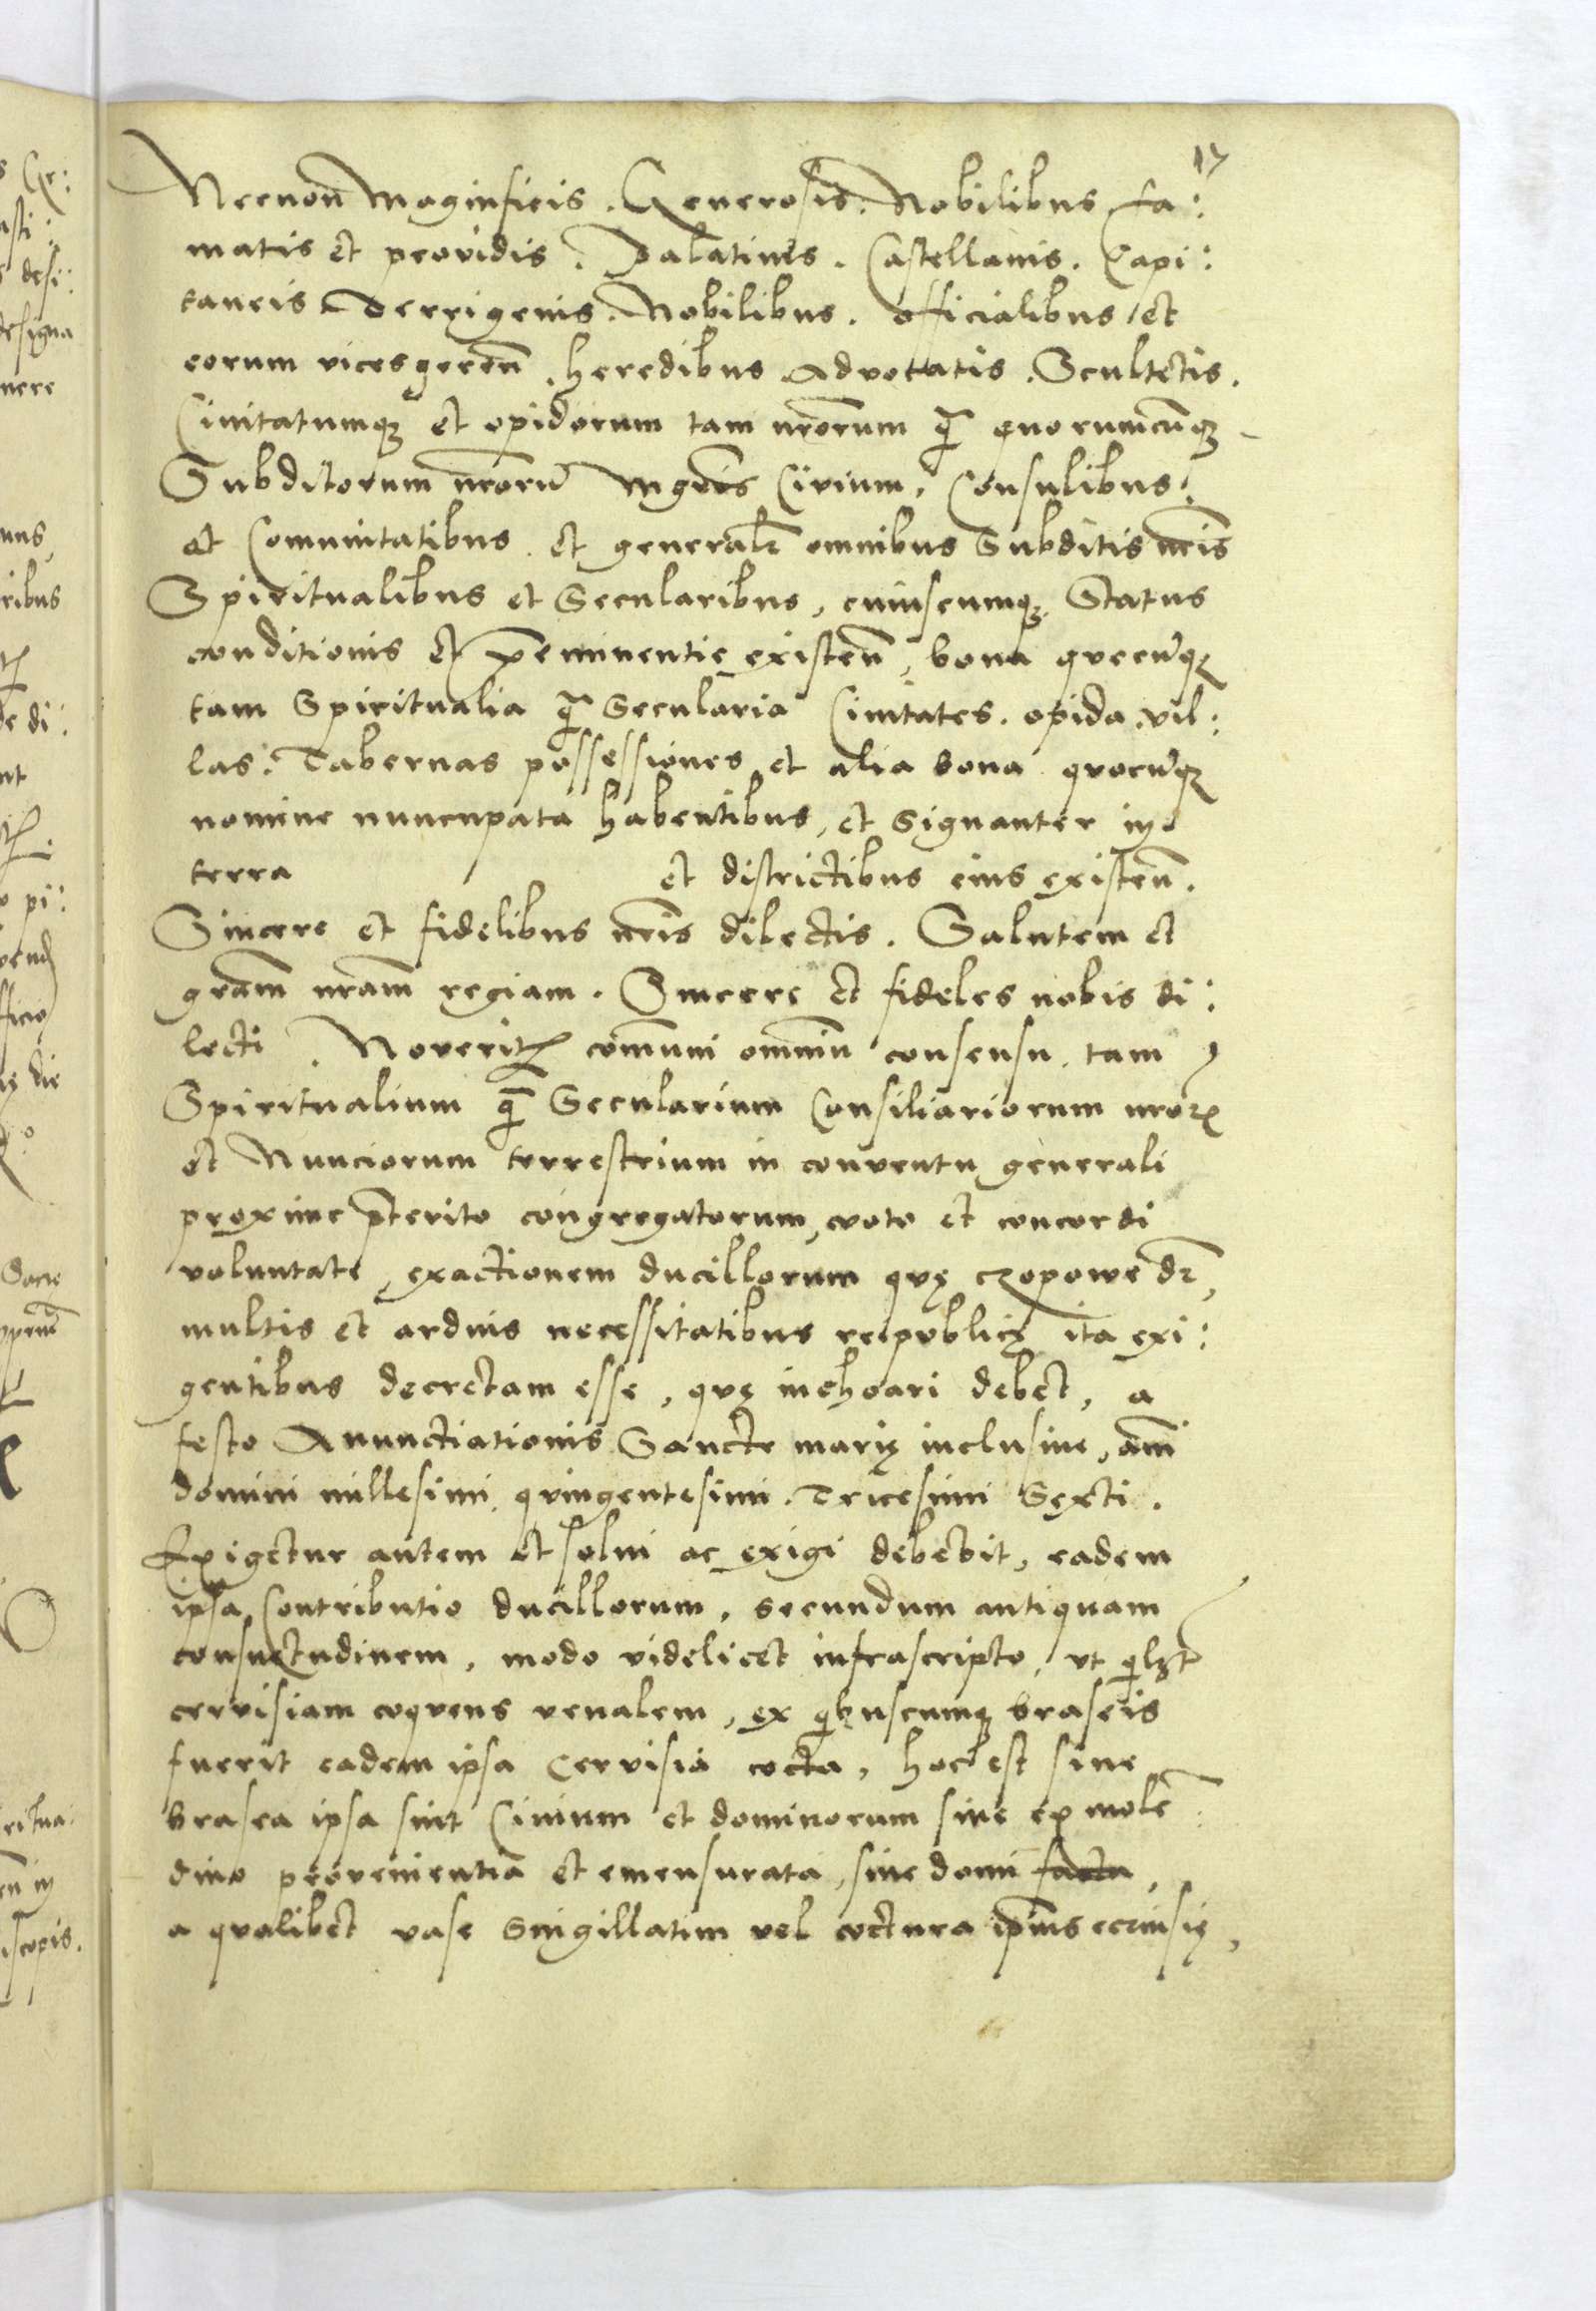 17
Necnon Magnificis . Generosis . Nobilibus fa:
matis et providis . Palatinis . Castellanis . Capi:
taneis Terrigenis . Nobilibus . officialibus et
eorum vicesgeren̄ . heredibus Advocatis . Scultetis .
Civitatumqꝫ et opidorum tam nr̄orum q̄ quorumcūqꝫ
Subditorum nr̄orū Mgr̄is Civium . Consulibus
et Comunitatibus . et general̄r omnibus Subditis nr̄is
Spiritualibus et Secularibus , cuiuscumqꝫ Status
conditionis et p̄eminentię existen̄ , bona quecūqꝫ
tam Spiritualia q̄ Secularia Civitates . opida . vil:
las : Tabernas possessiones et alia bona quocūqꝫ
nomine nuncupata habentibus , et Signanter in
terra et districtibus eius existen̄ .
Sincere et fidelibus nr̄is dilectis . Salutem et
gr̄am nr̄am regiam . Sincere et fideles nobis di:
lecti . Noveritꝭ com̄uni omniū consensu . tam
Spiritualium q̄ Secularium Consiliariorum nr̄oꝝ
et Nunciorum terrestrium in conventu generali
proxime p̄terito congregatorum , voto et concordi
voluntate , exactionem ducillorum quę czopowe dr̄ ,
multis et arduis necessitatibus reipublicę ita exi:
gentibus decretam esse , quę inchoari debet , a
festo Anunctiationis Sancte marię inclusive , an̄i
domini millesimi quingentesimi . Tricesimi Sexti .
Exigetur autem et solui ac exigi debebit , eadem
ipsa Contributio ducillorum , secundum antiquam
consuetudinem , modo videlicet infrascripto , ut q̄lꝫt
cervisiam coquens venalem , ex qbuscumqꝫ braseis
fuerit eadem ipsa Cervisia cocta , hoc est sive
brasea ipsa sint Civium et dominorum sive ex molē
dino provenientia et emensurata , sive domi facta ,
a qualibet vase Singillatim vel coctura ip̄ius cervisię ,